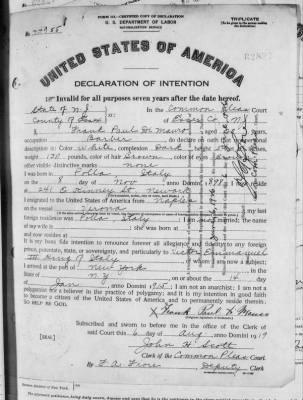 FORM 203—CERTIFIED COPY OF DECLARATION
TRIPLICATE
U. S. DEPARTMENT OF LABOR
NATURALIZATION SERVICE
UNITED STATES OF AMERICA
DECLARATION OF INTENTION
Invalid for all purposes seven years after the date hereof.
State of N J In the Common Pleas Court
County of Essex Of Essex Co N J
Frank Paul
Barber do declare on oath
description is: Color White, complexion Dark, height
weight 130 pounds, color of hair Brown, color of eyes
other visible distinctive marks none
I was born in Polla Italy
on the 8 day of Nov, anno Domini 1898; I now reside
at 241 Kinney St Newark
I emigrated to the United States of America from Naples
on the vessel Verona; my last
foreign residence was Polla Italy. I am not married; the name
of my wife is; she was born at
and now resides at
It is my bona fide intention to renounce forever all allegiance and fidelity to any foreign
prince, potentate, state, or sovereignty, and particularly to Victor Emmanuel
III King of Italy, of whom I am now a subject;
I arrived at the port of New York, in the
State of N.Y., on or about the 14 day
of Jan, anno Domini 1915; I am not an anarchist; I am not a
polygamist nor a believer in the practice of polygamy; and it is my intention in good faith
to become a citizen of the United States of America and to permanently reside therein:
SO HELP ME GOD.
Frank Paul
Subscribed and sworn to before me in the office of the Clerk of
said Court this 6 day of Aug, anno Domini 1919
[SEAL]
John H Scott
Clerk of the Common Pleas Court.
By, Deputy Clerk